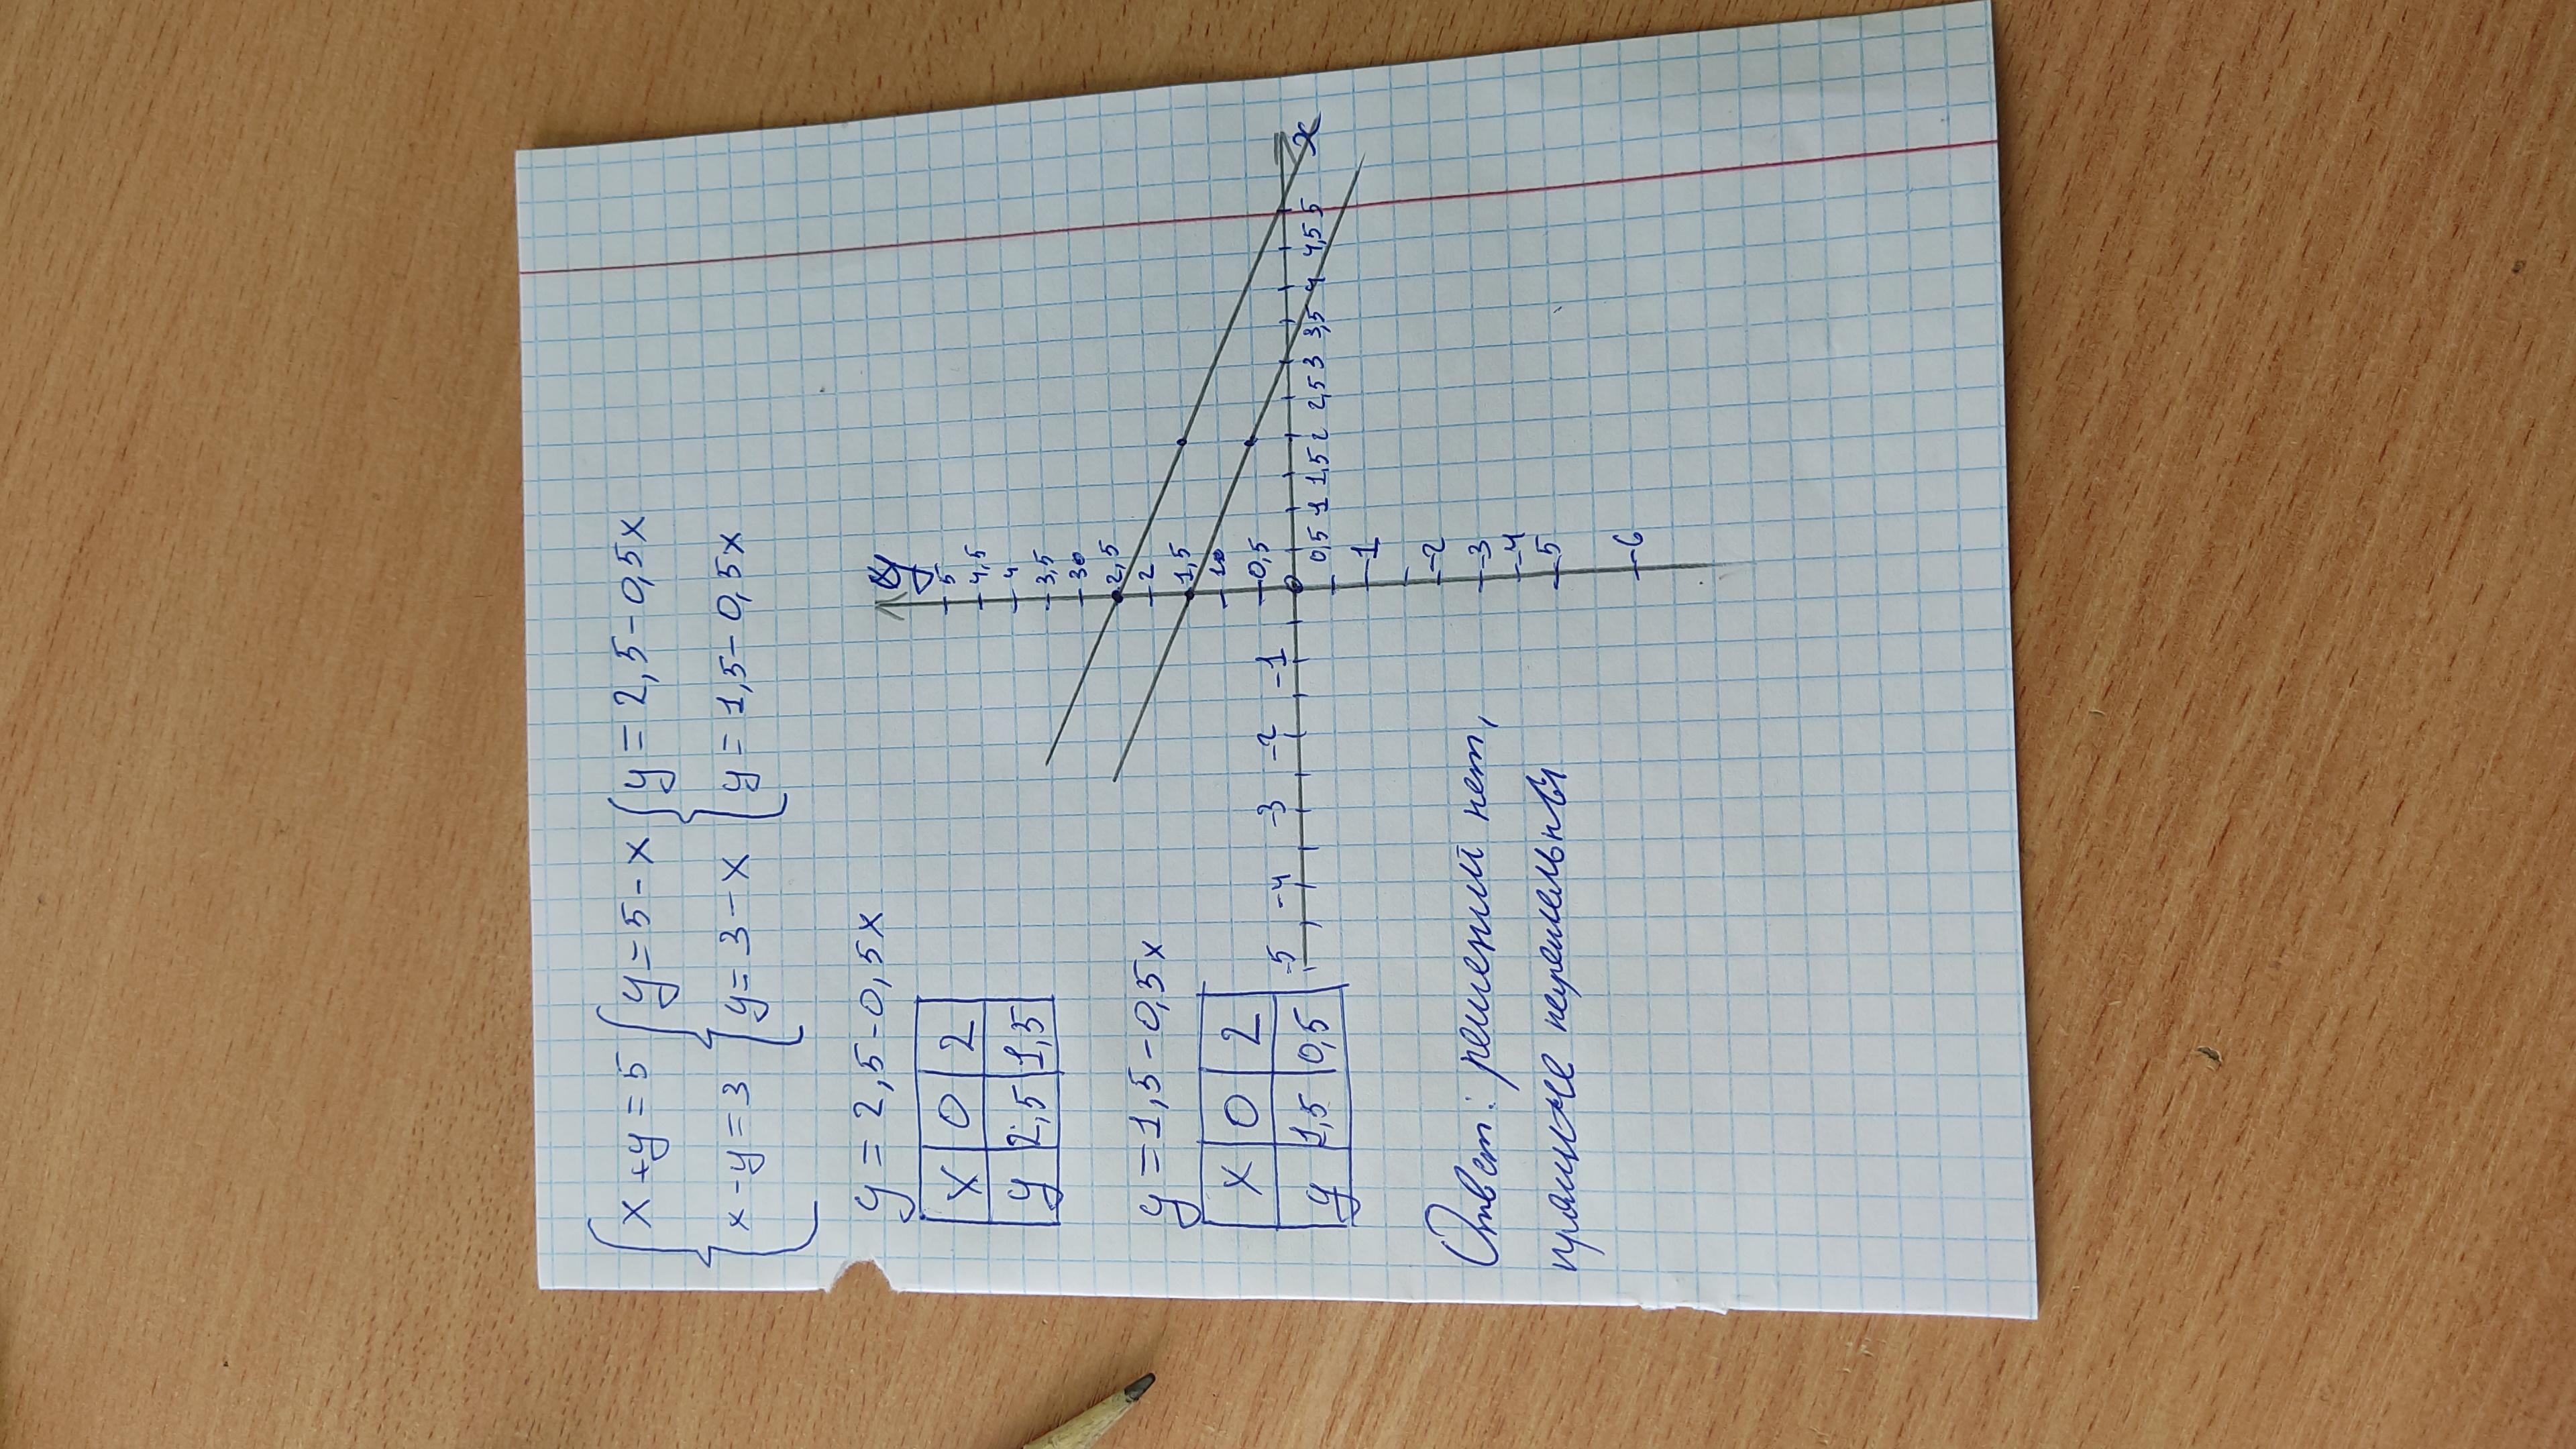 { x + y = 5 { y = 5 - x { y = 2,5 - 0,5x
{ x - y = 3 { y = 3 - x { y = 1,5 - 0,5x
y = 2,5 - 0,5x
x 0 2
y 2,5 1,5
y = 1,5 - 0,5x
x 0 2
y 1,5 0,5
y
5
4,5
4
3,5
30
2,5
2
1,5
10
0,5
-5 -4 -3 -2 -1 0 0,5 1 1,5 2 2,5 3 3,5 4 4,5 5 x
-1
-2
-3
-4
-5
-6
Ответ: решений нет,
прямые